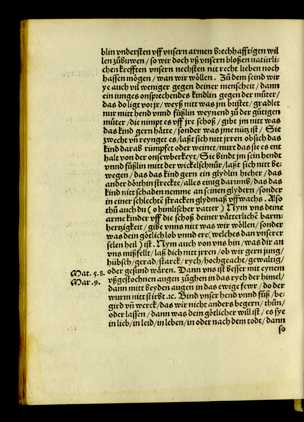 blin vndersten vff vnsern armen brechhafftigen wil
len zůbuwen / so wir doch vß vnsern bloßen natürli
chen krefften vnsern nechsten nit recht lieben noch
hassen mögen / wan wir wöllen. Zů dem seind wir
ye auch vil weniger gegen deiner menscheit / dann
ein iunges onsprechendes kindlin gegen der můter /
das do ligt vor ir / weyß nitt was im bristet / gradlet
nur mitt hend vnnd füßlin weynend zů der gütigen
můter / die nimpt es vff ir schoß / gibt im nitt was
das kind gern hätte / sonder was im nütz ist / Sie
zwecht vñ reyniget es / laßt sich nitt irren ob sich das
kind darab rümpfet oder weinet / nurt das sie es ent
halt vor der onseuberkeyt / Sie bindt im sein hende
vnnd füßlin mitt der wickelschnůr / laßt sich nitt be-
wegen / das das kind gern ein glydlin hieher / das
ander dörthin streckte / alles ewig darumb / das das
kind nitt schaden nemme an seinen glydern / sonder
in einer schlechtē stracken glydmaß vffwachs. Al so
thů auch du (o himlischer vatter) Nym vns deine
arme kinder vff die schoß deiner vätterlichē barm
hertzigkeit / gibe vnns nitt was wir wöllen / sonder
was dein götlich lob vnnd ere / welches da vnserer
selen heil) ist. Nym auch von vns hin / was dir an
vns mißfelt / laß dich nitt irren / ob wir gern iung /
hübsch / gerad / starck / rych / hochgeacht / gewaltig /
Mat. 5.8. oder gesund wären. Dann vns ist besser mit eynem
Mar. 9. vßgestochnen augen zůgehn in das rych der himel /
dann mitt beyden augen in das ewige fewr / do der
wurm nitt stirbt ꝛc. Bind vnser hend vnnd füß / be-
gird vñ werck / das wir nicht anders begern / thün /
oder lassen / dann was dein götlicher will ist / es sye
in lieb / in leid / in leben / in oder nach dem todt / dann
so